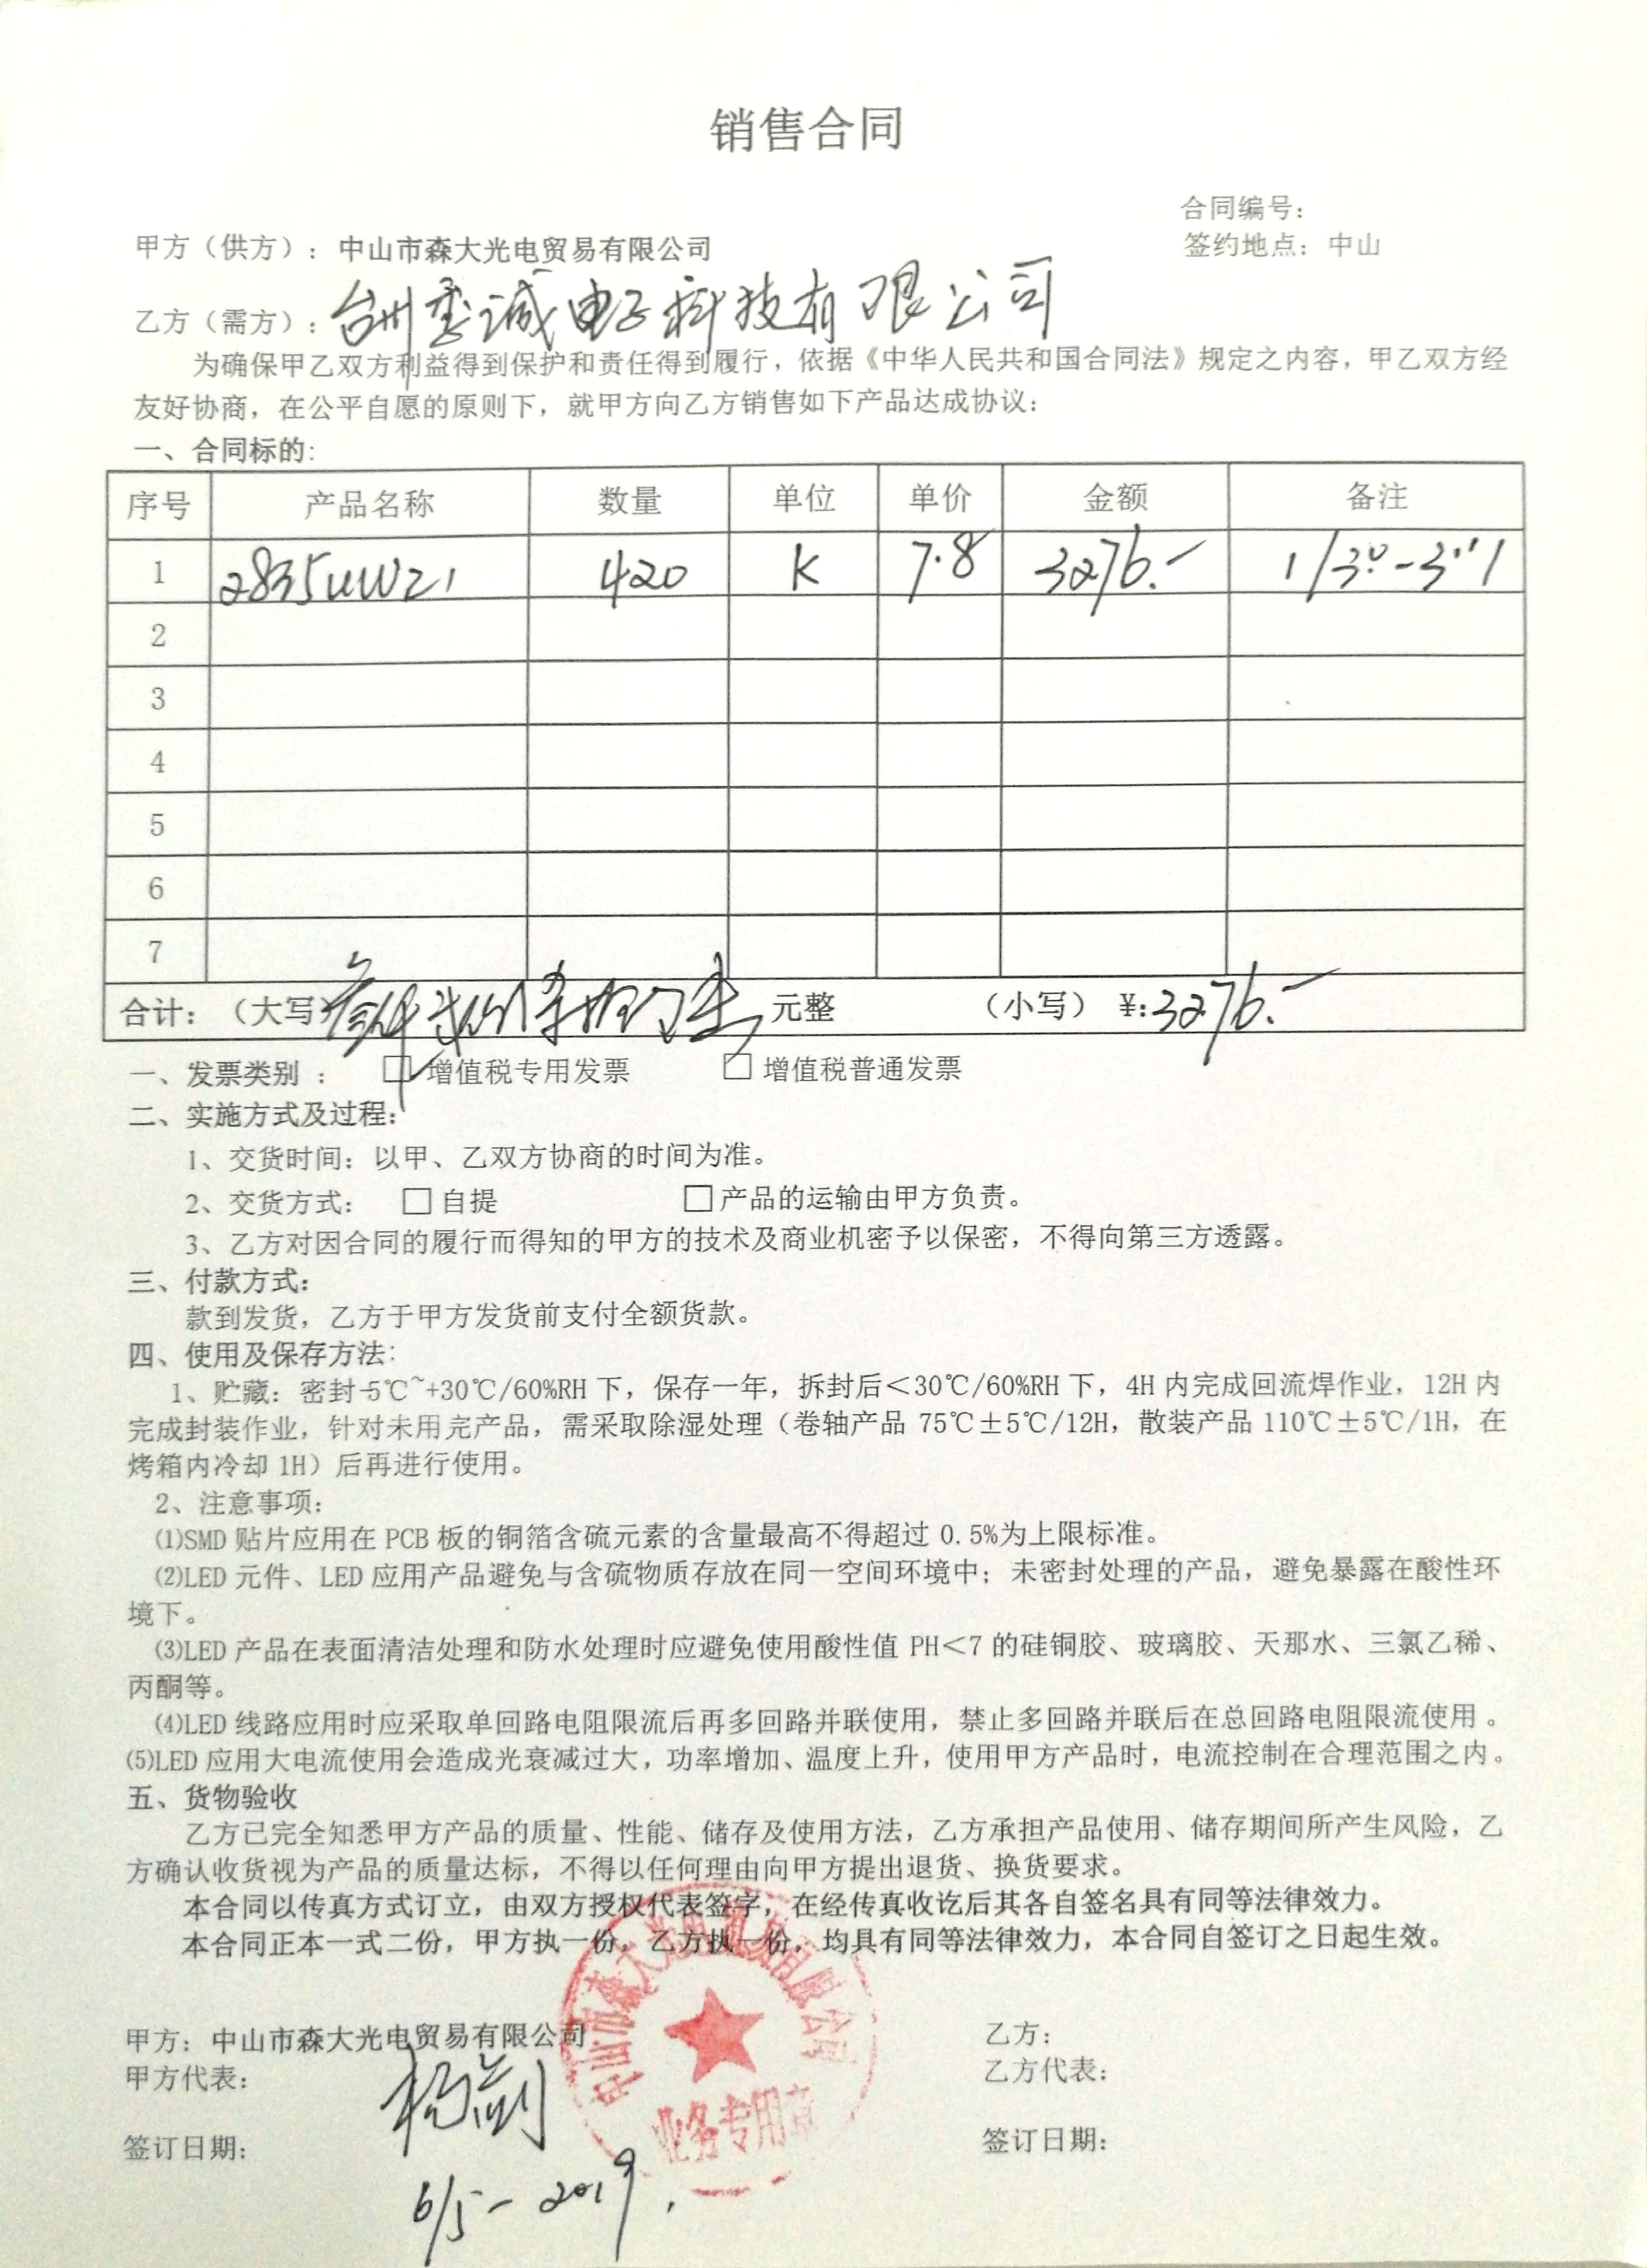 销售合同
合同编号：
甲方（供方）：中山市森大光电贸易有限公司
签约地点：中山
乙方（需方）：台州 诚电子科技有限公司
为确保甲乙双方利益得到保护和责任得到履行，依据《中华人民共和国合同法》规定之内容，甲乙双方经
友好协商，在公平自愿的原则下，就甲方向乙方销售如下产品达成协议：
一、合同标的：
序号 产品名称 数量 单位 单价 金额 备注
1 2835UWZ1 420 K 7.8 3276.-
2
3
4
5
6
7
合计：（大写） 元整 （小写）¥:3276.-
一、发票类别 ： ☑增值税专用发票 □增值税普通发票
二、实施方式及过程：
1、交货时间：以甲、乙双方协商的时间为准。
2、交货方式： □自提 □产品的运输由甲方负责。
3、乙方对因合同的履行而得知的甲方的技术及商业机密予以保密，不得向第三方透露。
三、付款方式：
款到发货，乙方于甲方发货前支付全额货款。
四、使用及保存方法：
1、贮藏：密封-5℃~+30℃/60%RH 下，保存一年，拆封后＜30℃/60%RH 下，4H 内完成回流焊作业，12H 内
完成封装作业，针对未用完产品，需采取除湿处理（卷轴产品 75℃±5℃/12H，散装产品 110℃±5℃/1H，在
烤箱内冷却 1H）后再进行使用。
2、注意事项：
⑴SMD 贴片应用在 PCB 板的铜箔含硫元素的含量最高不得超过 0.5%为上限标准。
⑵LED 元件、LED 应用产品避免与含硫物质存放在同一空间环境中；未密封处理的产品，避免暴露在酸性环
境下。
⑶LED 产品在表面清洁处理和防水处理时应避免使用酸性值 PH＜7 的硅铜胶、玻璃胶、天那水、三氯乙稀、
丙酮等。
⑷LED 线路应用时应采取单回路电阻限流后再多回路并联使用，禁止多回路并联后在总回路电阻限流使用 。
⑸LED 应用大电流使用会造成光衰减过大，功率增加、温度上升，使用甲方产品时，电流控制在合理范围之内。
五、货物验收
乙方已完全知悉甲方产品的质量、性能、储存及使用方法，乙方承担产品使用、储存期间所产生风险，乙
方确认收货视为产品的质量达标，不得以任何理由向甲方提出退货、换货要求。
本合同以传真方式订立，由双方授权代表签字，在经传真收讫后其各自签名具有同等法律效力。
本合同正本一式二份，甲方执一份，乙方执一份，均具有同等法律效力，本合同自签订之日起生效。
中山市森大光电贸易有限公司
业务专用章
甲方：中山市森大光电贸易有限公司
乙方：
甲方代表：
乙方代表：
签订日期：
签订日期：
6/5-2019.